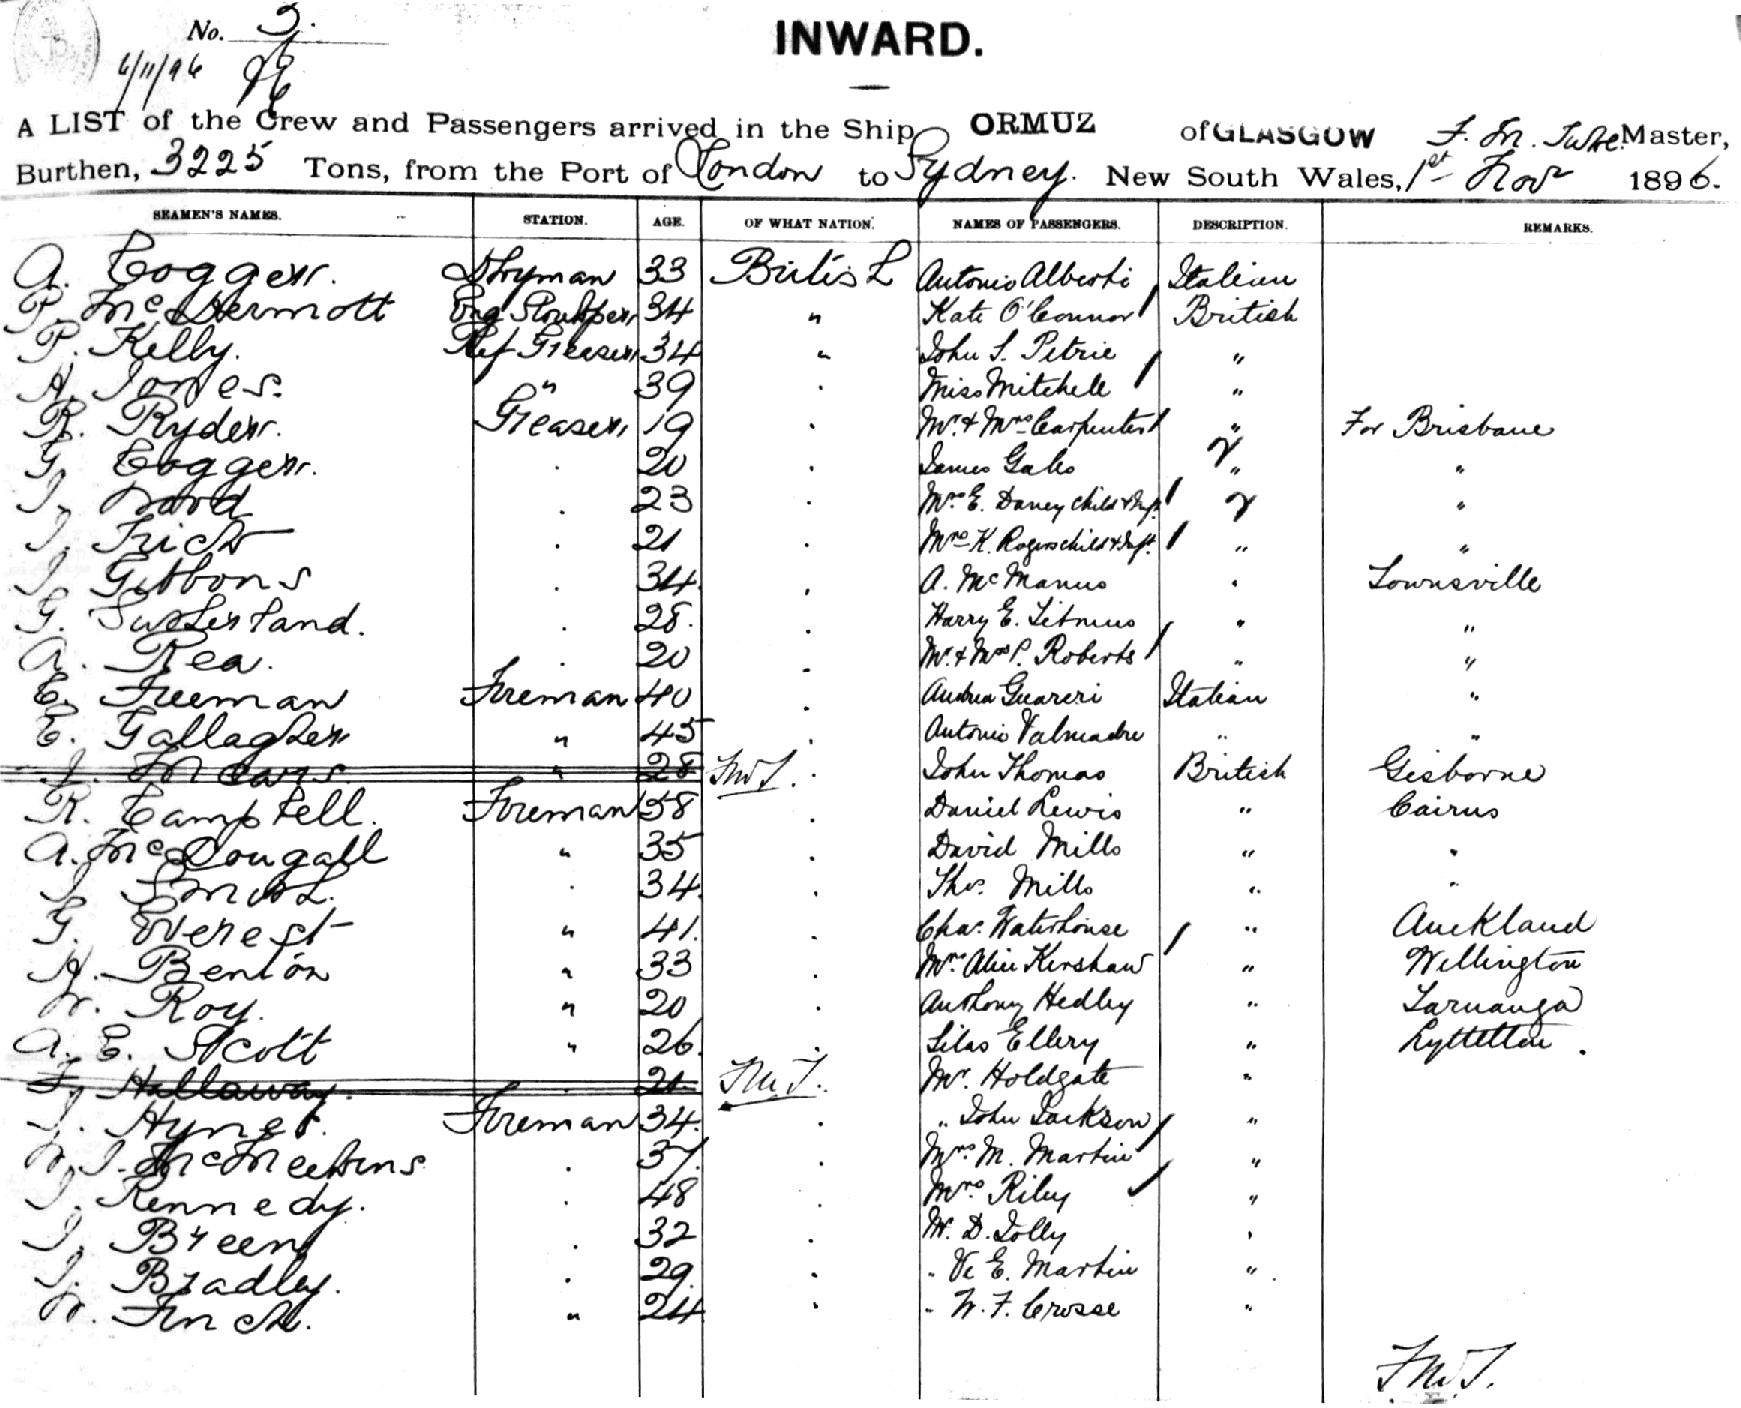 No. 3.
6/11/96
INWARD.
A LIST of the Crew and Passengers arrived in the Ship ORMUZ of GLASGOW F. M. Tuke Master,
Burthen, 3225 Tons, from the Port of London to Sydney. New South Wales, 1st Novr 1896.
SEAMEN'S NAMES. STATION. AGE. OF WHAT NATION. NAMES OF PASSENGERS. DESCRIPTION. REMARKS.
A. Cogger. 33 British Antonio Alberti Italian
P. McDermott 34 " Kate O'Connor British
P. Kelly. Ref Greaser 34 " John S. Petrie "
A. Jones. " 39 . Miss Mitchell "
R. Ryder. Greaser, 19 . Mr. & Mrs Carpenter " For Brisbane
G. Cogger. . 20 . James Gales " "
J. Ward . 23 . Mrs E. Davey child & Inft. "
J. . 21 . Mrs K. Rogers child & Inft. " "
J. Gibbons . 34. . A. McManus . Townsville
G. Sutherland. . 28. . Harry E. Titmus " "
A. Rea. . 20 . Mr. & Mrs P. Roberts " "
E. Freeman Fireman 40 . Andrea Guareri Italian "
E. Gallagher " 45 . Antonio Valmadre " "
J. Mears. " 28 F.M.T. . John Thomas British Gisborne
R. Campbell. Fireman 38 . Daniel Lewis " Cairns
A. McDougall " 35 . David Mills " "
J. Smith. . 34. . Thos. Mills " "
G. Everest " 41. . Chas. Waterhouse " Auckland
H. Benton " 33 . Mrs. Alice Kershaw " Wellington
W. Roy. " 20 . Anthony Hedley " Tarnanga
A. E. Scott " 26. . Silas Ellery " Lyttelton.
F. Hallaway. . 21. F.M.T. Mr. Holdgate "
J. Hynes. Fireman 34. . " John Jackson "
W. J. . 37. . Mrs. M. Martin "
J. Kennedy. . 48 . Mrs. Riley "
J. Breen . 32 . Mr. D. Jolly .
J. Bradley. . 29. . " E. Martin "
W. Finch. " 24 . " W. F. Crosse "
F.M.T.